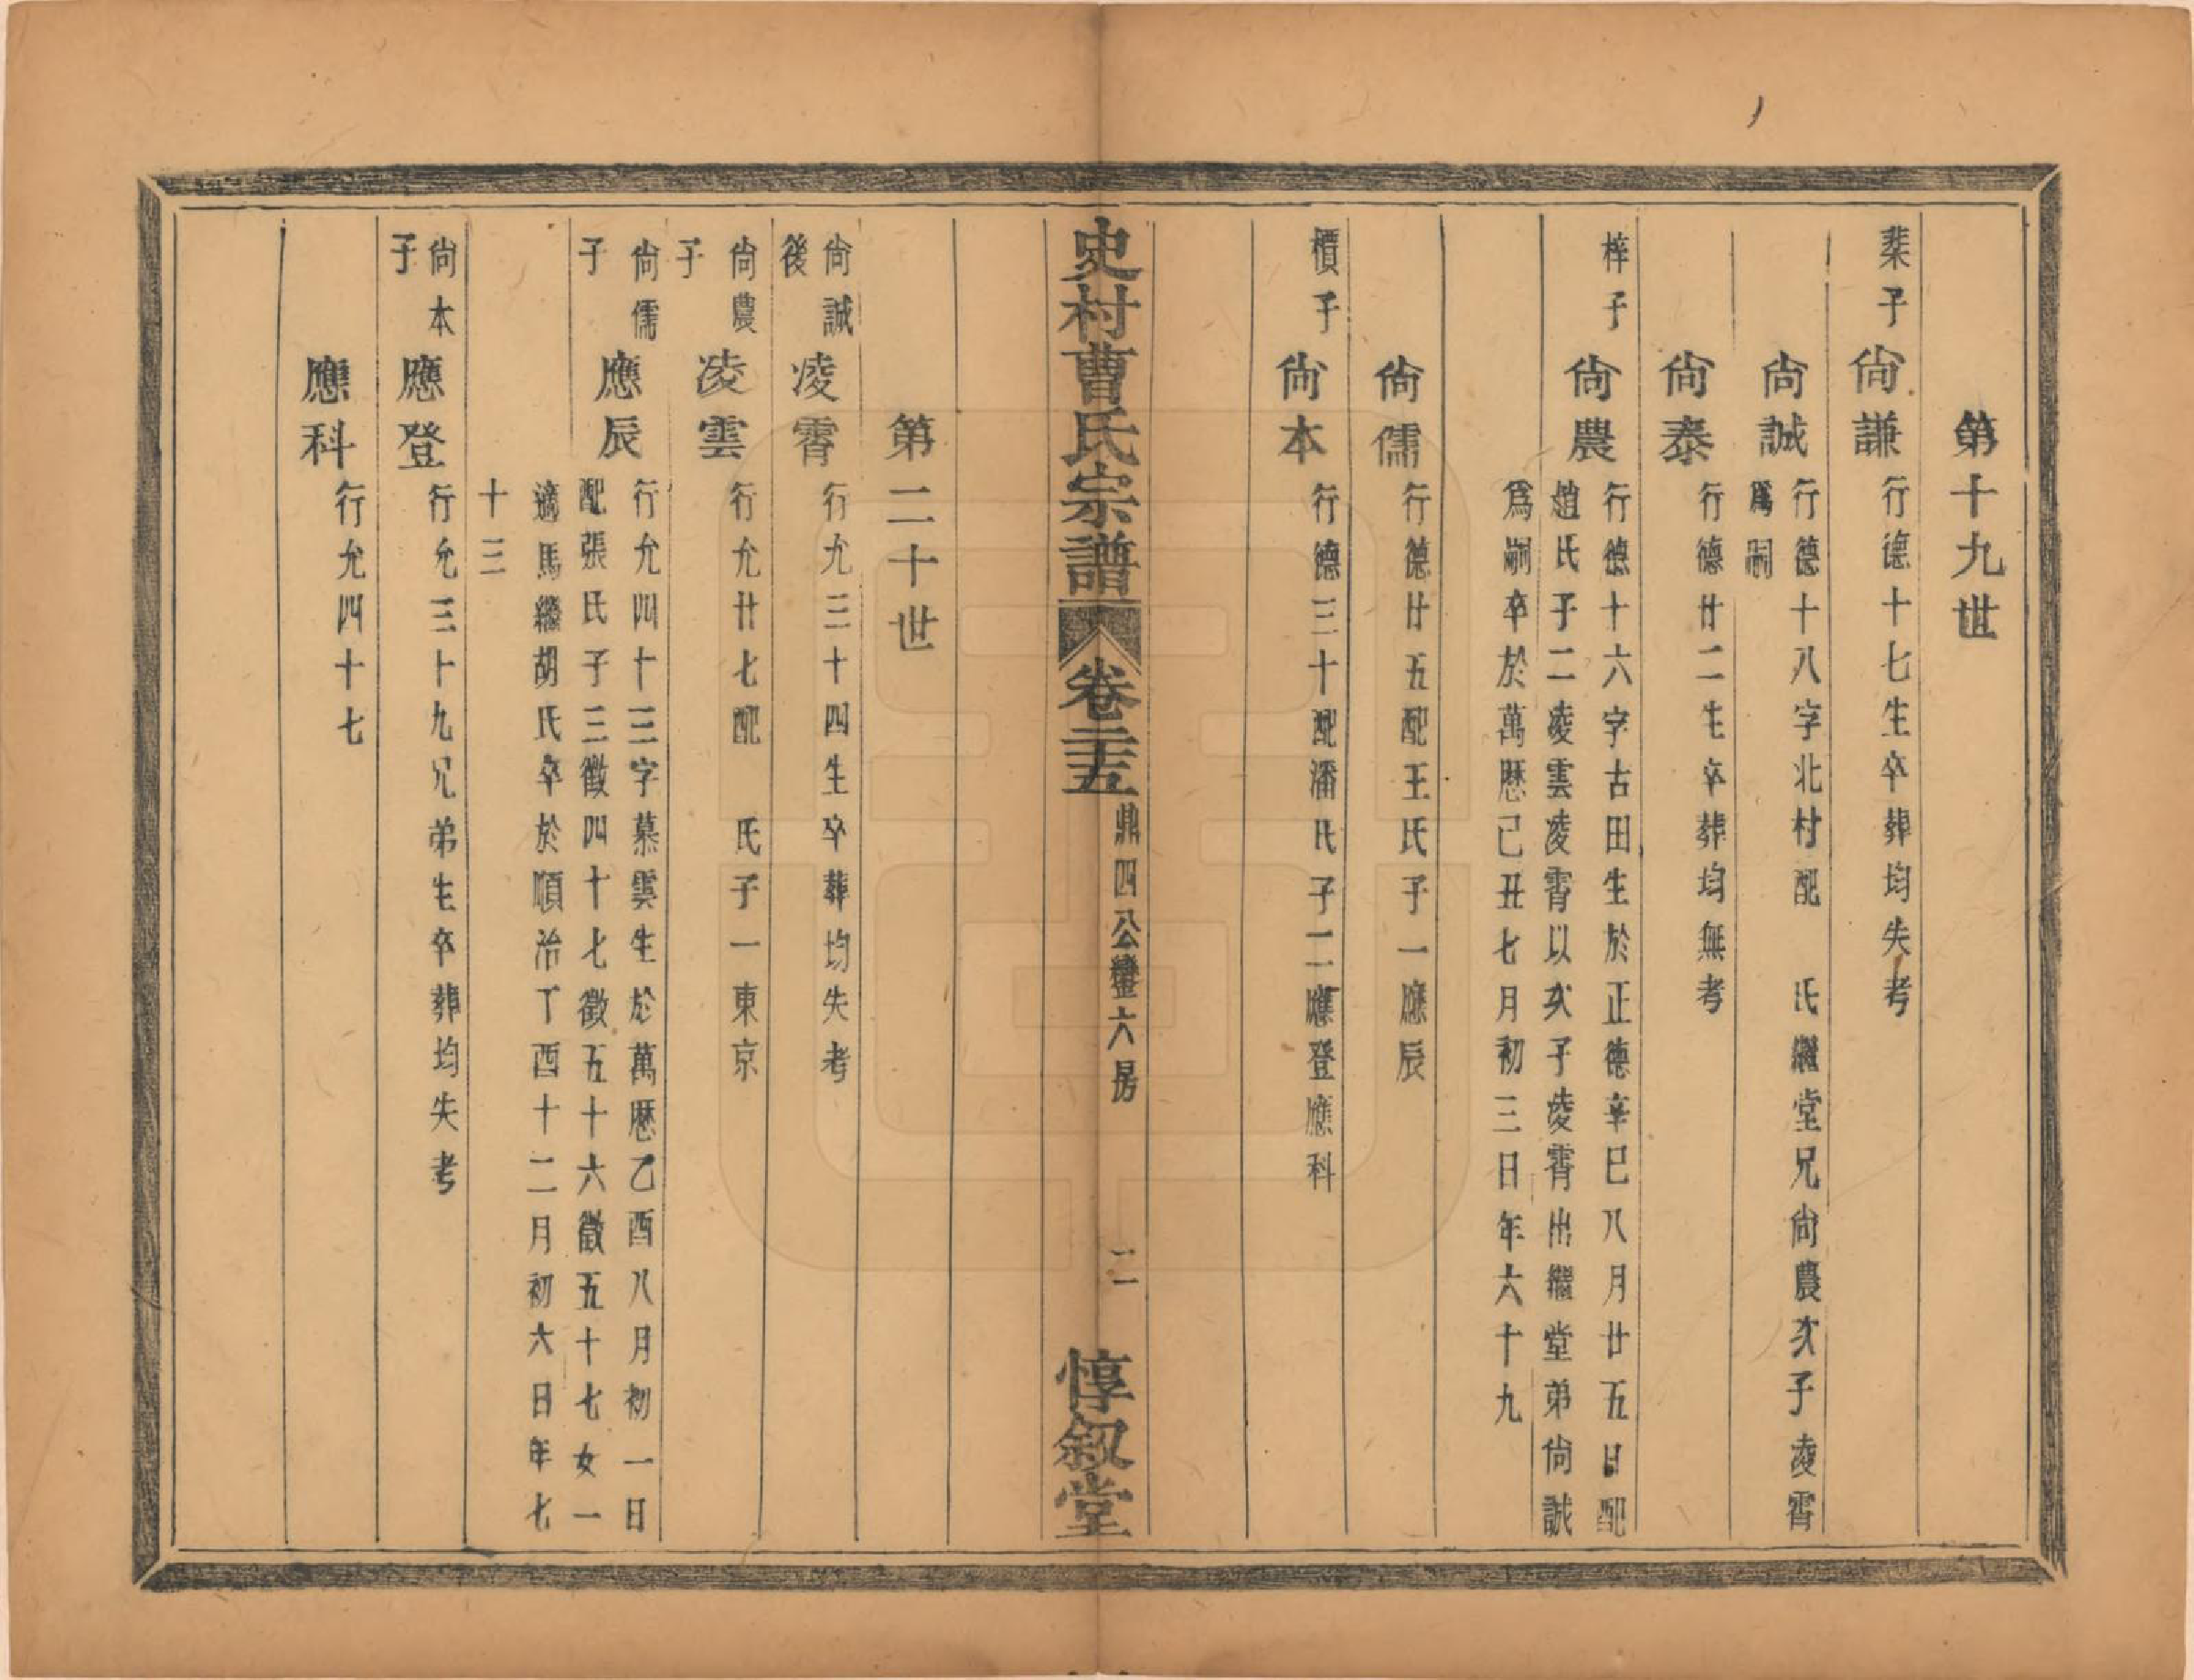 第十九世
棐子 尙謙 行德十七生卒葬均失考
尙誠 行德十八字北村配 氏繼堂兄尙農次子凌霄
爲嗣
尙泰 行德廿二生卒葬均無考
梓子 尙農 行德十六字古田生於正德辛巳八月廿五日配
趙氏子二凌雲凌霄以次子凌霄出繼堂弟尙誠
爲嗣卒於萬歷己丑七月初三日年六十九
尙儒 行德廿五配王氏子一應辰
檟子 尙本 行德三十配潘氏子二應登應科
史村曹氏宗譜 卷二十五 鼎四公鑾六房 二 惇叙堂
第二十世
尙誠後 凌霄 行允三十四生卒葬均失考
尙農子 凌雲 行允廿七配 氏子一東京
尙儒子 應辰 行允四十三字慕雲生於萬歷乙酉八月初一日
配張氏子三徵四十七徵五十六徵五十七女一
適馬繼胡氏卒於順治丁酉十二月初六日年七
十三
尙本子 應登 行允三十九兄弟生卒葬均失考
應科 行允四十七